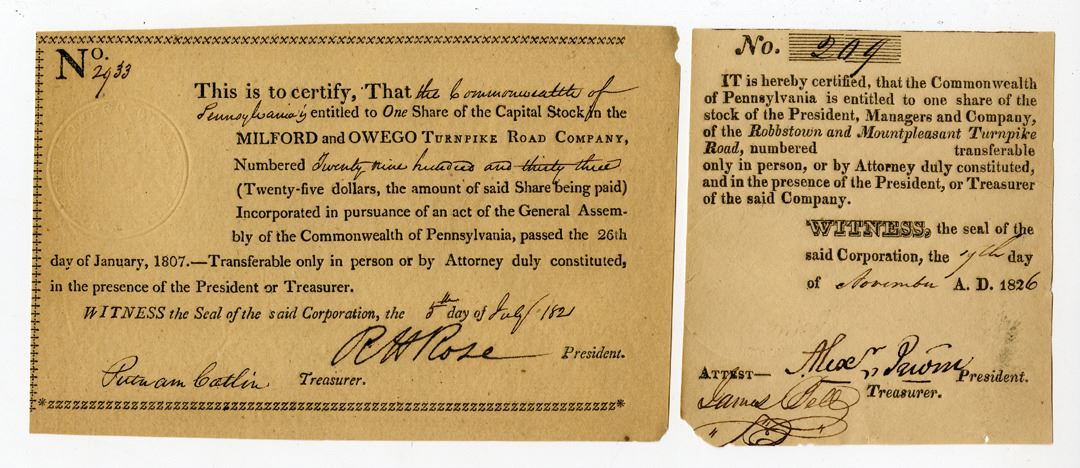 No.
2933
This is to certify, That the Commonwealth of
Pennsylvania is entitled to One Share of the Capital Stock in the
MILFORD and OWEGO TURNPIKE ROAD COMPANY,
Numbered Twenty nine hundred and thirty three
(Twenty-five dollars, the amount of said Share being paid)
Incorporated in pursuance of an act of the General Assem-
bly of the Commonwealth of Pennsylvania, passed the 26th
day of January, 1807.—Transferable only in person or by Attorney duly constituted,
in the presence of the President or Treasurer.
WITNESS the Seal of the said Corporation, the 5th day of July 1821
R H Rose President.
Putnam Catlin Treasurer.
No. 209
IT is hereby certified, that the Commonwealth
of Pennsylvania is entitled to one share of the
stock of the President, Managers and Company,
of the Robbstown and Mountpleasant Turnpike
Road, numbered transferable
only in person, or by Attorney duly constituted,
and in the presence of the President, or Treasurer
of the said Company.
WITNESS, the seal of the
said Corporation, the day
of November A. D. 1826
ATTEST— Alexr President.
James Treasurer.